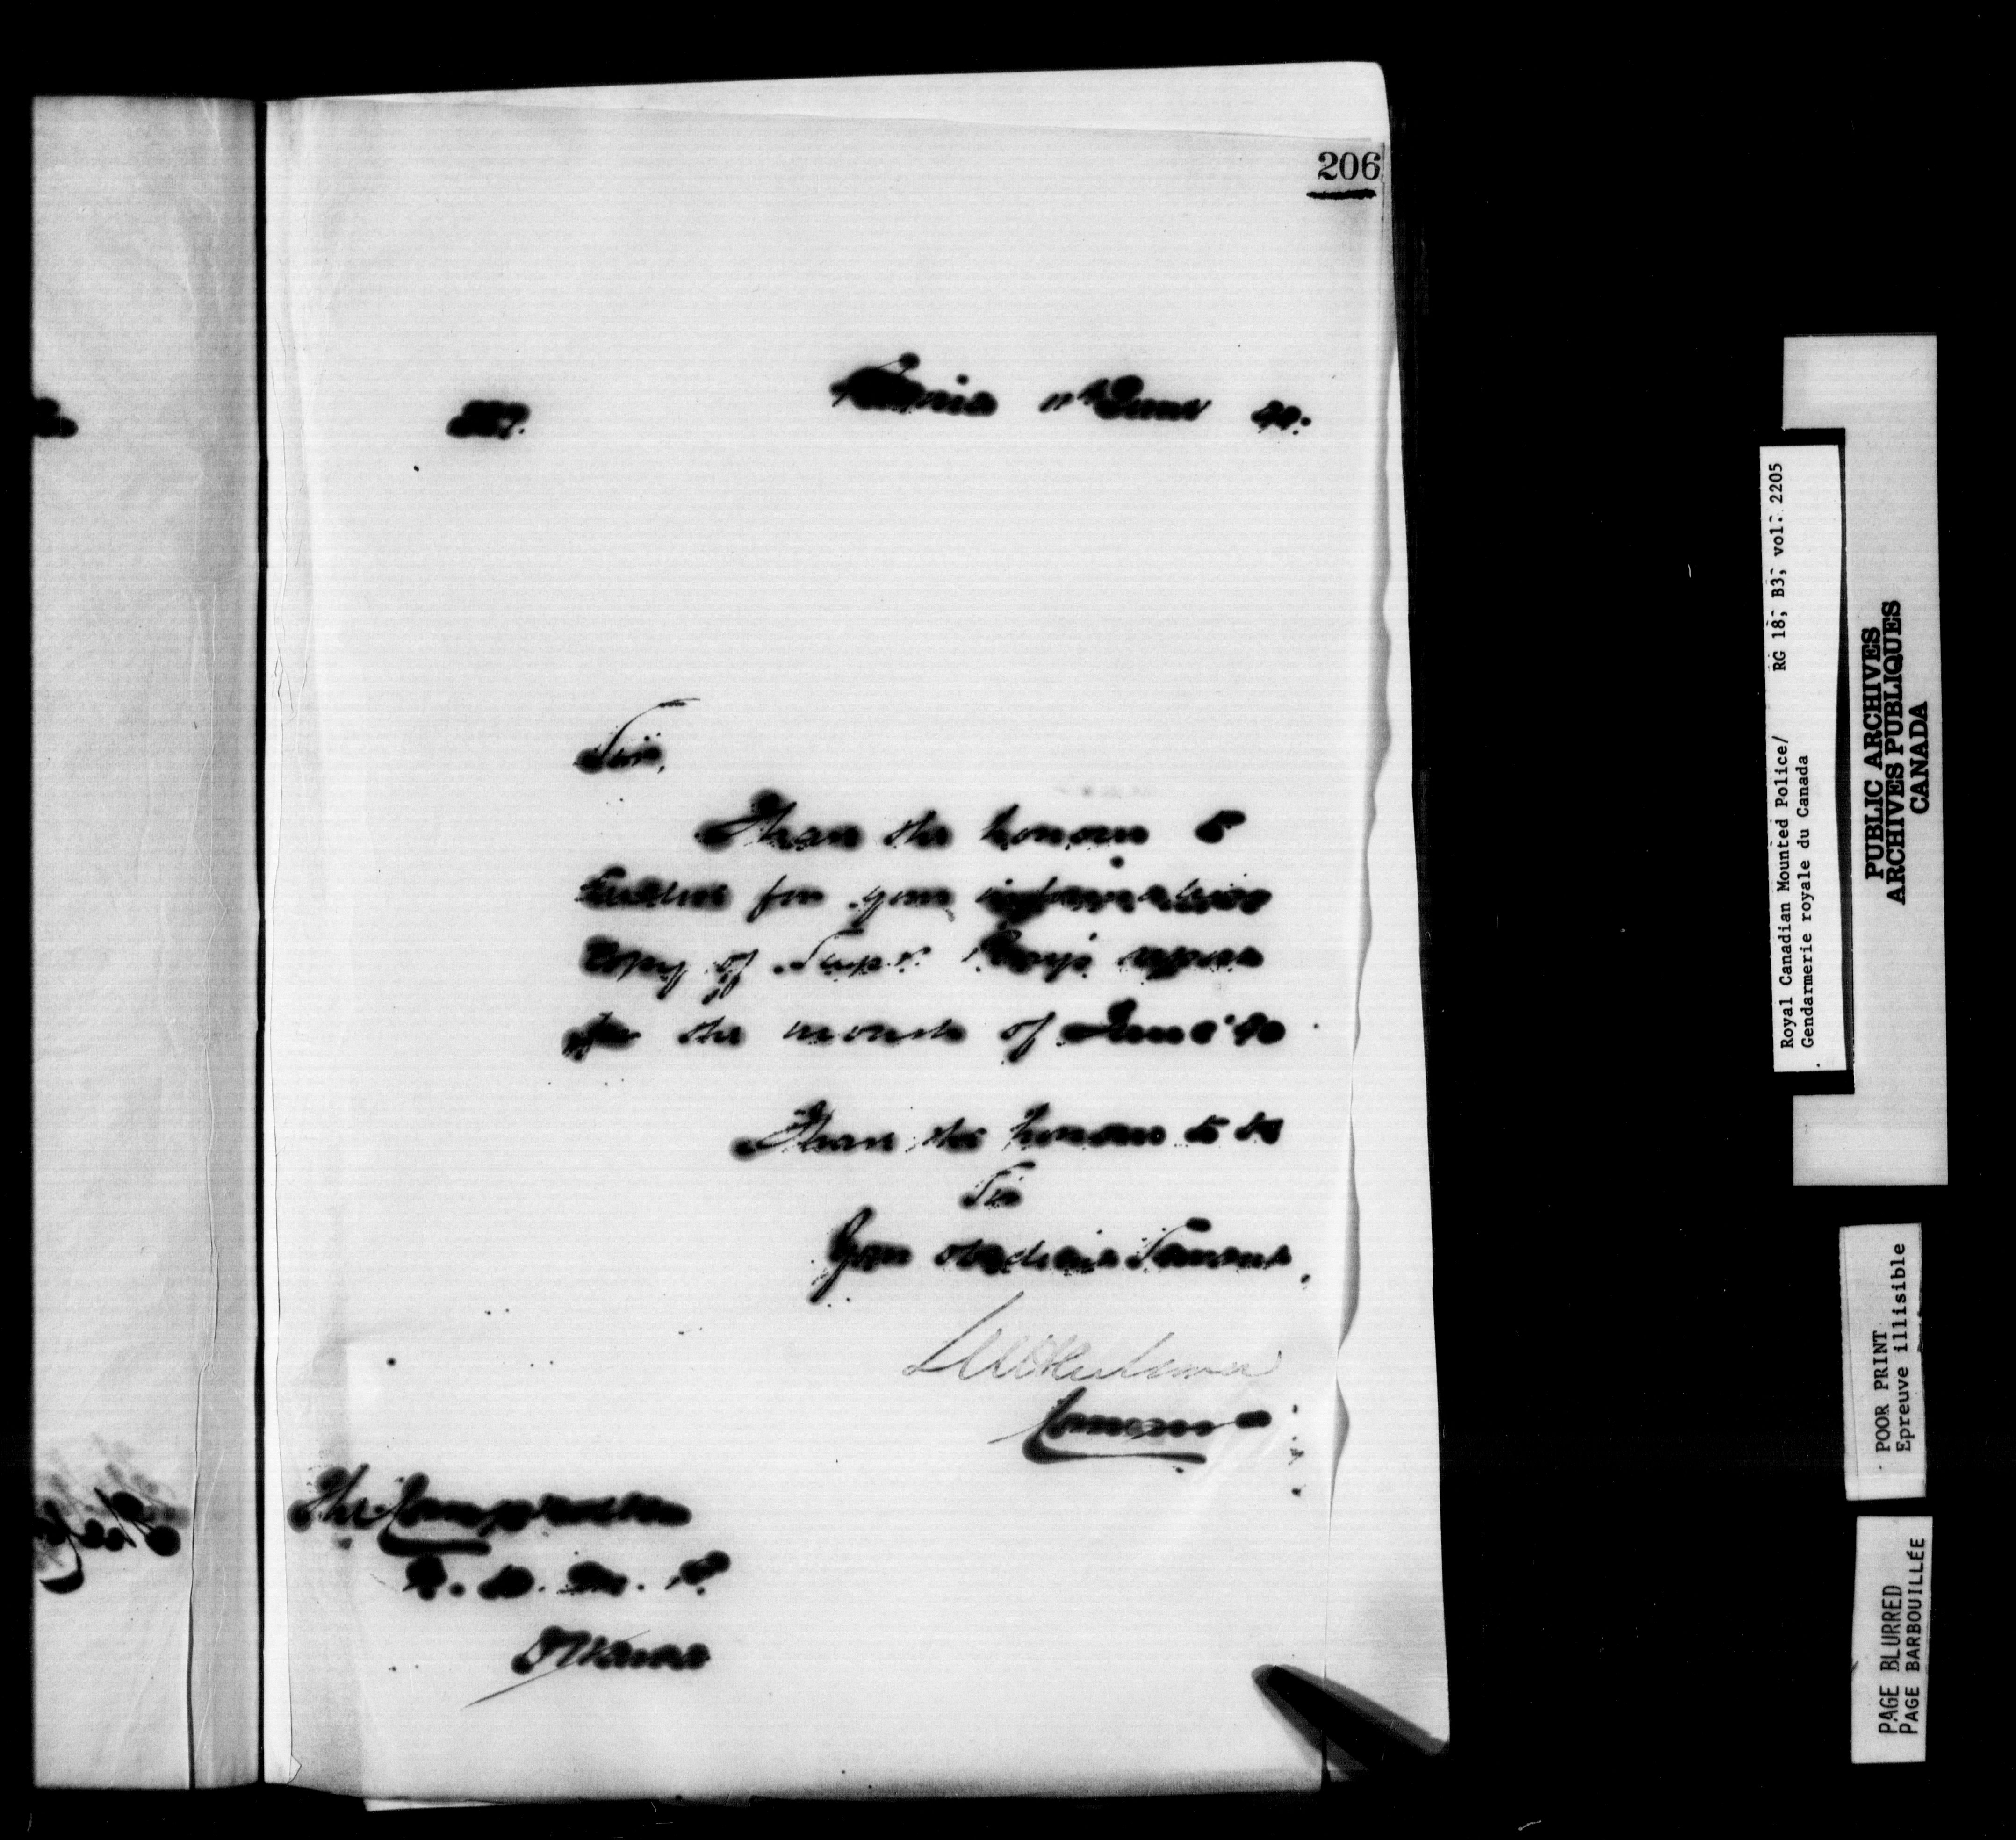 206
11th June 90.
Sir,
I have the honour to
for your information
copy of Supt. report
for the month of June 90
I have the honour to be
Sir
Your obedient Servant,
The Comptroller
N. W. M. P.
Ottawa
Royal Canadian Mounted Police/ RG 18, B3, vol. 2205
Gendarmerie royale du Canada
PUBLIC ARCHIVES
ARCHIVES PUBLIQUES
CANADA
POOR PRINT
Epreuve illisible
PAGE BLURRED
PAGE BARBOUILLÉE